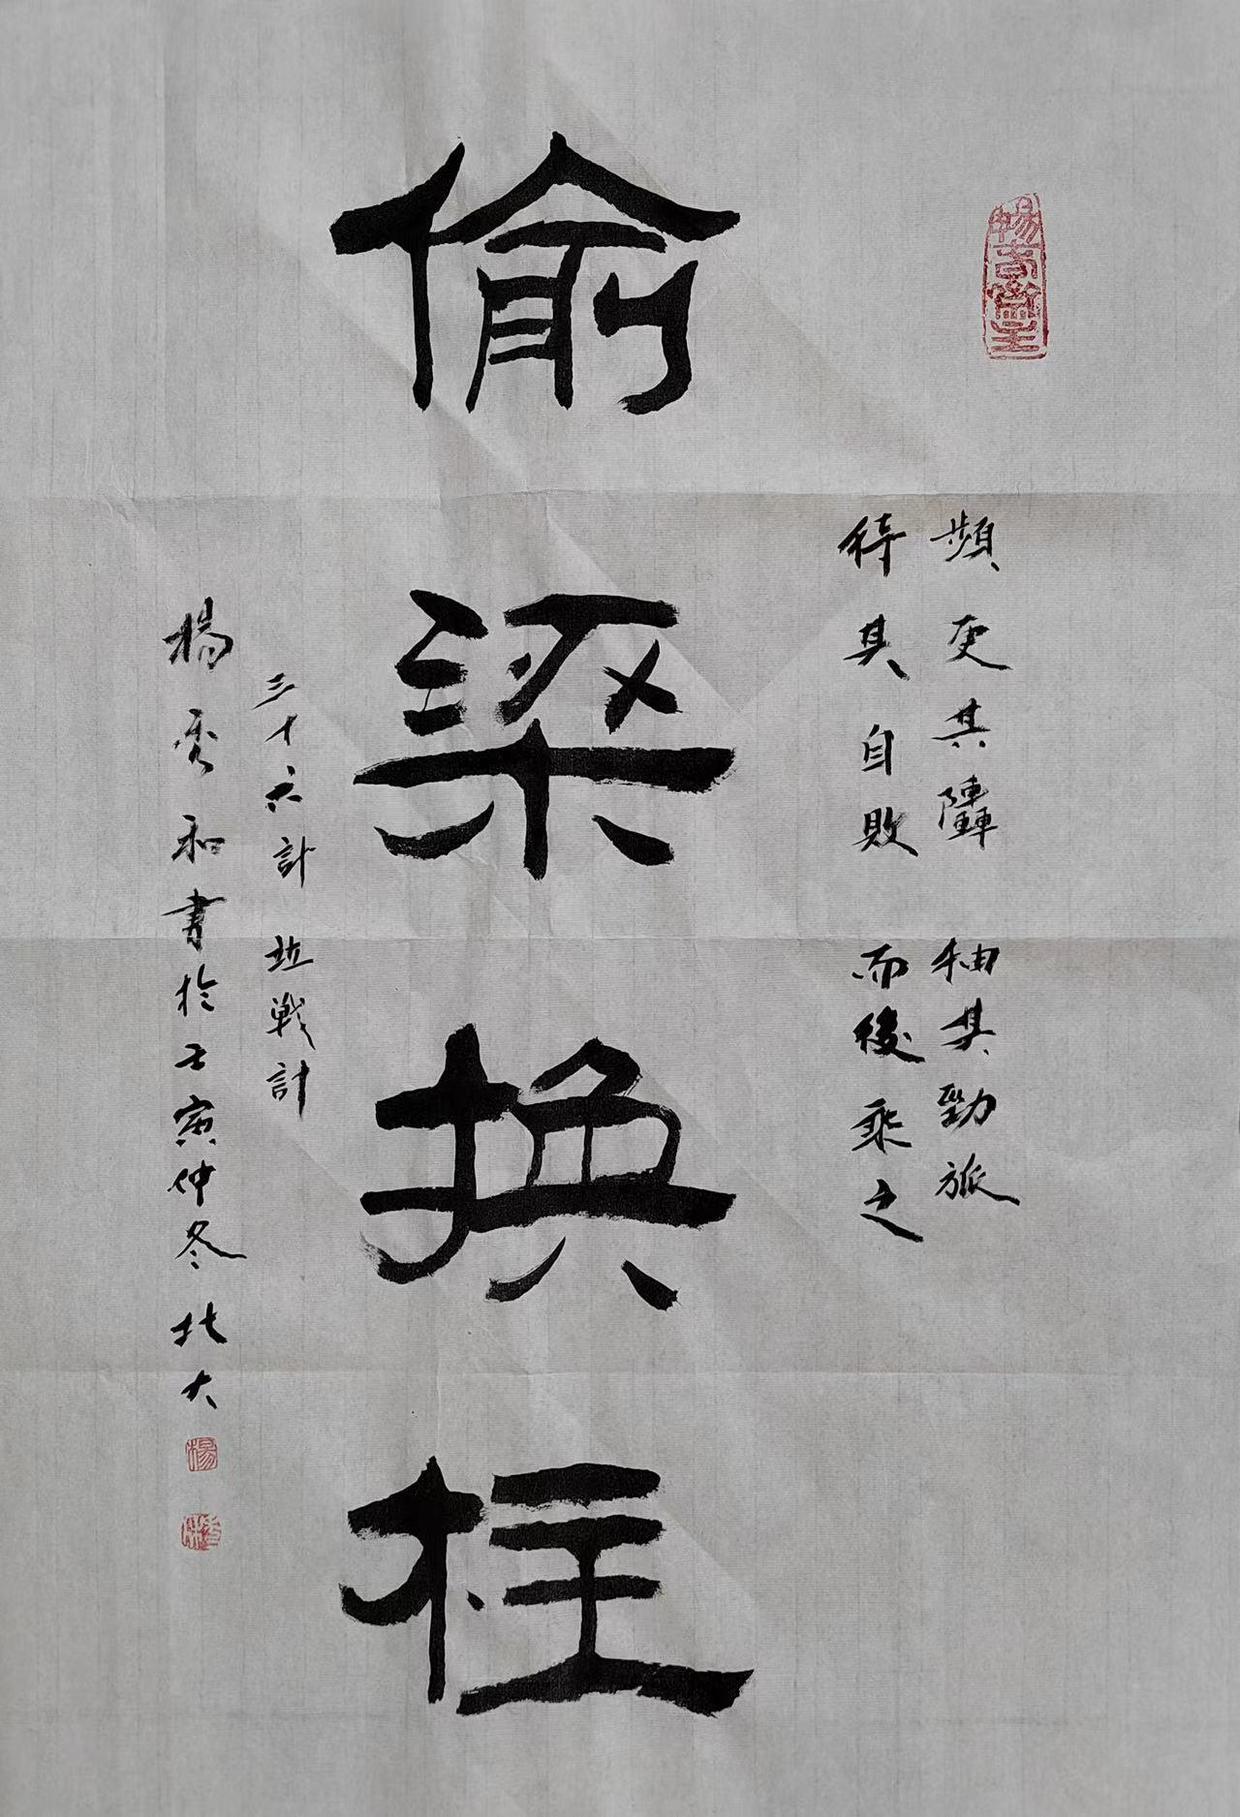 頻更其陣 抽其勁旅
待其自敗 而後乘之
偷梁换柱
三十六計 竝戰計
楊秀和書於壬寅仲冬北大
楊